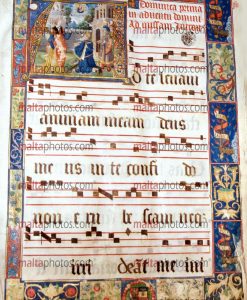 Dominica prima
in adventu domini
Ad missam Introitus
d te levavi
animam meam deus
me us in te confi do
non e ru be scam neq3
irri deāt me ini
maltaphotos.com
maltaphotos.com
maltaphotos.com
maltaphotos.com
maltaphotos.com
maltaphotos.com